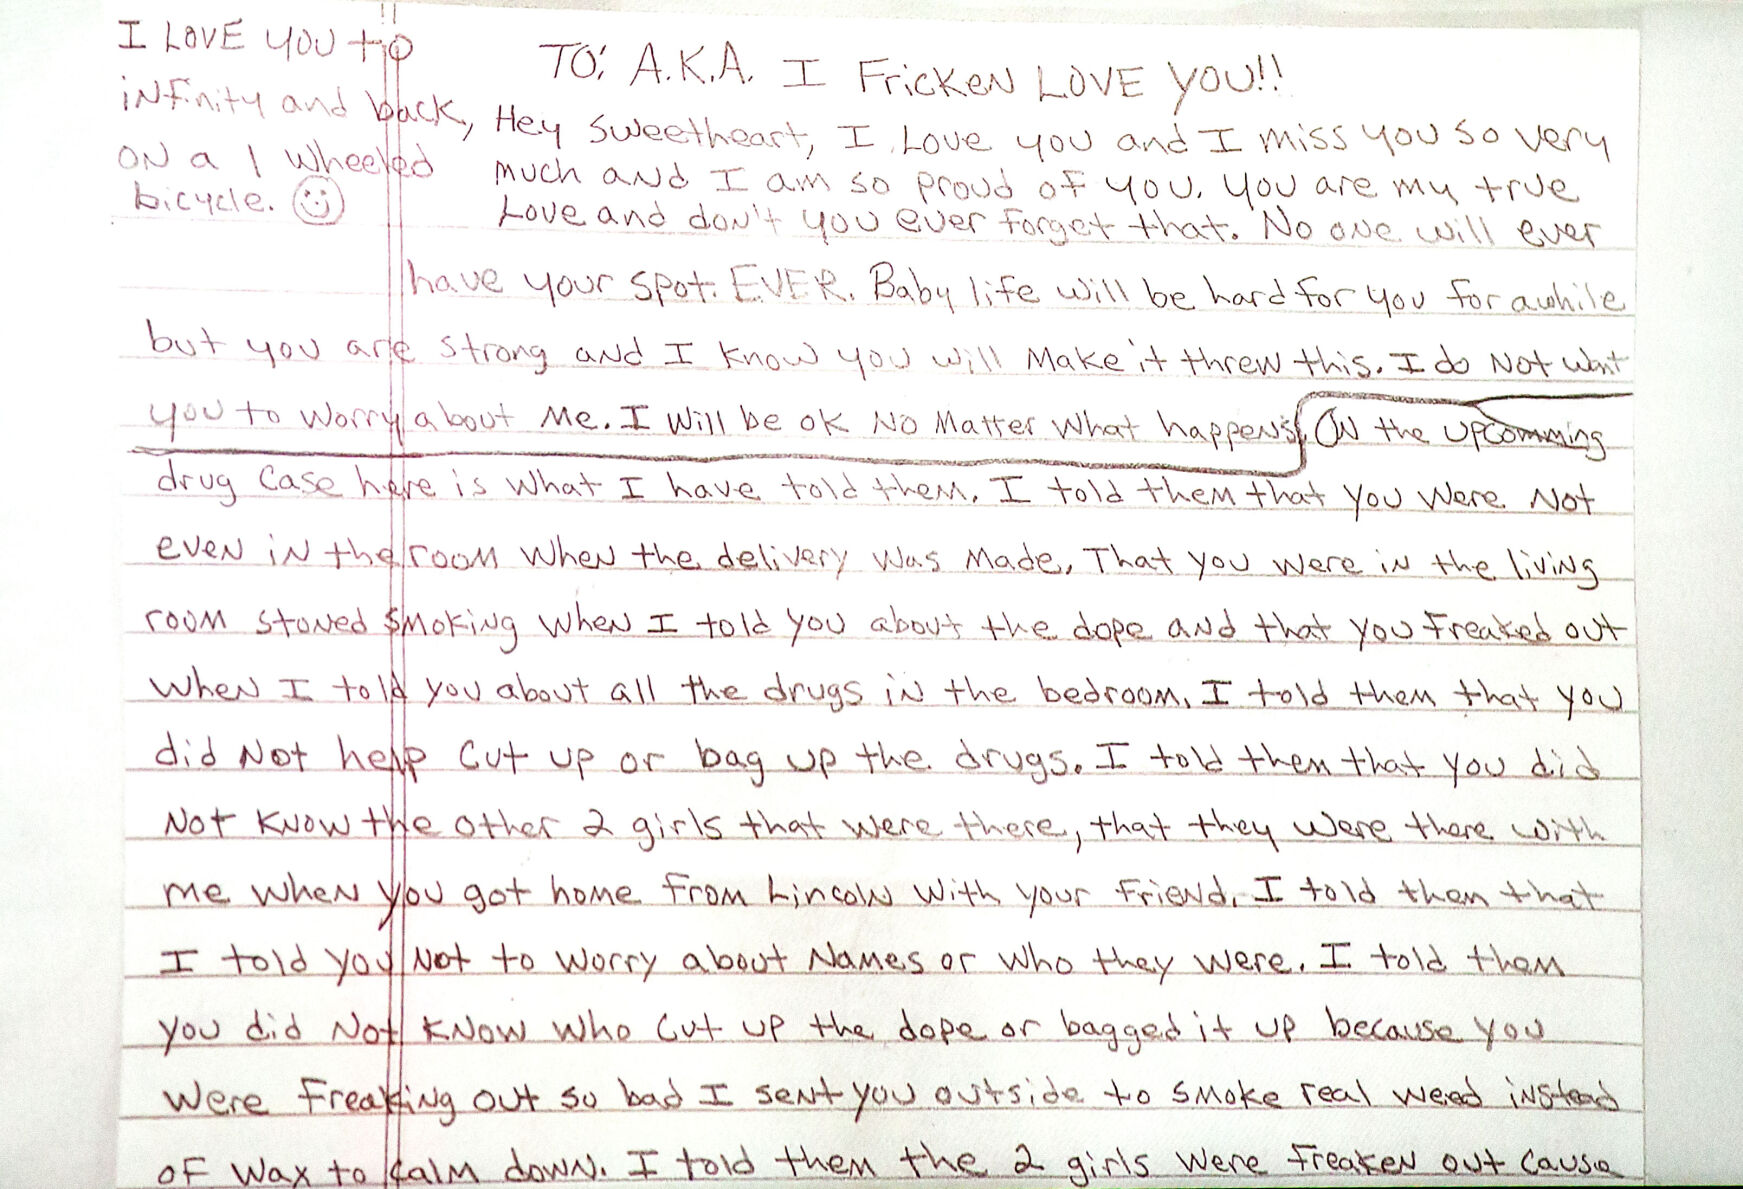 I LOVE YOU to
infinity and back,
ON a 1 wheeled
bicycle.
TO: A.K.A. I Fricken LOVE YOU!!
Hey sweetheart, I Love you and I miss you so very
much and I am so proud of you. You are my true
Love and don't you ever forget that. No one will ever
have your spot. EVER. Baby life will be hard for you for awhile
but you are strong and I know you will Make it threw this. I do Not want
you to worry about Me. I will be ok No Matter what happens. ON the upcomming
drug case here is what I have told them. I told them that you were Not
even in the room when the delivery was Made. That you were in the living
room stoned smoking when I told you about the dope and that you freaked out
when I told you about all the drugs in the bedroom. I told them that you
did Not help cut up or bag up the drugs. I told them that you did
Not know the other 2 girls that were there, that they were there with
me when you got home from Lincoln with your friend. I told them that
I told you Not to worry about Names or who they were. I told them
you did Not know who cut up the dope or bagged it up because you
were freaking out so bad I sent you outside to smoke real weed instead
of wax to calm down. I told them the 2 girls were freaken out cause